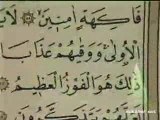 فَاكِهَةٍ اٰمِنِينَ لَا
الْاُولٰى وَوَقٰيهُمْ عَذَابَ
ذٰلِكَ هُوَ الْفَوْزُ الْعَظِيمُ
يَتَذَكَّرُونَ